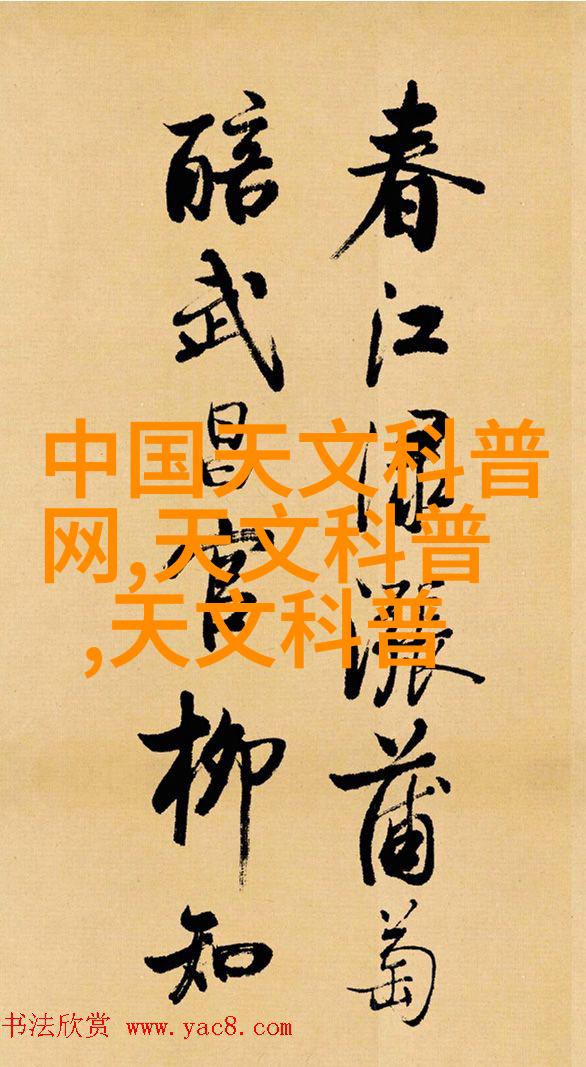 春江淥漲蒲萄
醅武昌官柳知
中国天文科普
网,天文科普
,天文科普
书法欣赏 www.yac8.com